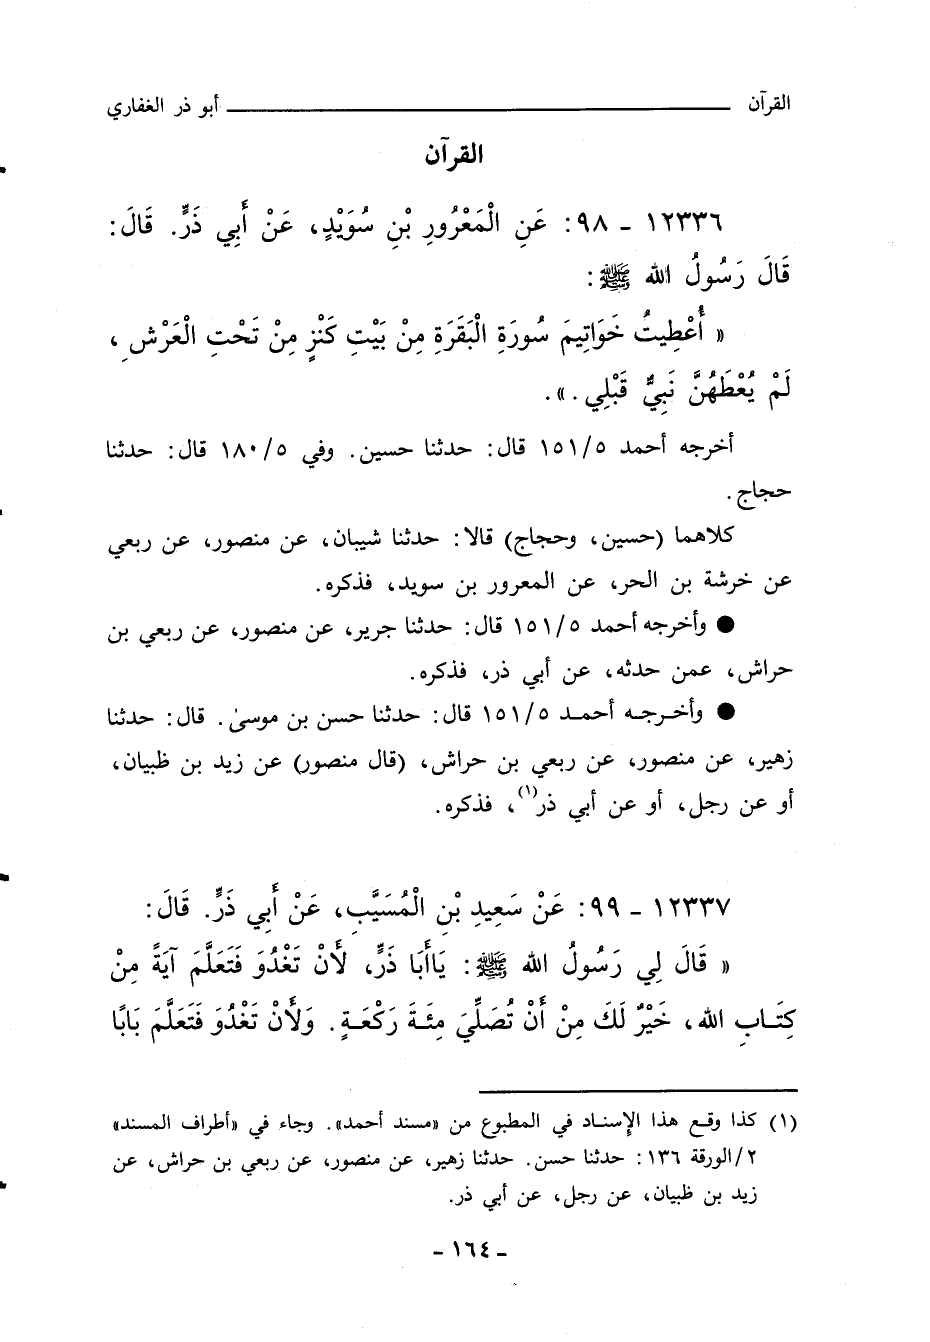 القرآن ــــــــــ أبو ذر الغفاري
القرآن
١٢٣٣٦ - ٩٨: عَنِ الْمَعْرُورِ بْنِ سُوَيْدٍ، عَنْ أَبِي ذَرٍّ. قَالَ:
قَالَ رَسُولُ الله ﷺ:
« أُعْطِيتُ خَوَاتِيمَ سُورَةِ الْبَقَرَةِ مِنْ بَيْتِ كَنْزٍ مِنْ تَحْتِ الْعَرْشِ،
لَمْ يُعْطَهُنَّ نَبِيٌّ قَبْلِي.».
أخرجه أحمد ١٥١/٥ قال: حدثنا حسين. وفي ١٨٠/٥ قال: حدثنا
حجاج.
كلاهما (حسين، وحجاج) قالا: حدثنا شيبان، عن منصور، عن ربعي
عن خرشة بن الحر، عن المعرور بن سويد، فذكره.
● وأخرجه أحمد ١٥١/٥ قال: حدثنا جرير، عن منصور، عن ربعي بن
حراش، عمن حدثه، عن أبي ذر، فذكره.
● وأخرجه أحمد ١٥١/٥ قال: حدثنا حسن بن موسىٰ. قال: حدثنا
زهير، عن منصور، عن ربعي بن حراش، (قال منصور) عن زيد بن ظبيان،
أو عن رجل، أو عن أبي ذر(١)، فذكره.
١٢٣٣٧ - ٩٩: عَنْ سَعِيدِ بْنِ الْمُسَيَّبِ، عَنْ أَبِي ذَرٍّ. قَالَ:
« قَالَ لِي رَسُولُ الله ﷺ: يَاأَبَا ذَرٍّ، لَأَنْ تَغْدُوَ فَتَعَلَّمَ آيَةً مِنْ
كِتَابِ الله، خَيْرٌ لَكَ مِنْ أَنْ تُصَلِّيَ مِئَةَ رَكْعَةٍ. وَلَأَنْ تَغْدُوَ فَتَعَلَّمَ بَابًا
(١) كذا وقع هذا الإسناد في المطبوع من «مسند أحمد». وجاء في «أطراف المسند»
٢/الورقة ١٣٦: حدثنا حسن. حدثنا زهير، عن منصور، عن ربعي بن حراش، عن
زيد بن ظبيان، عن رجل، عن أبي ذر.
- ١٦٤ -